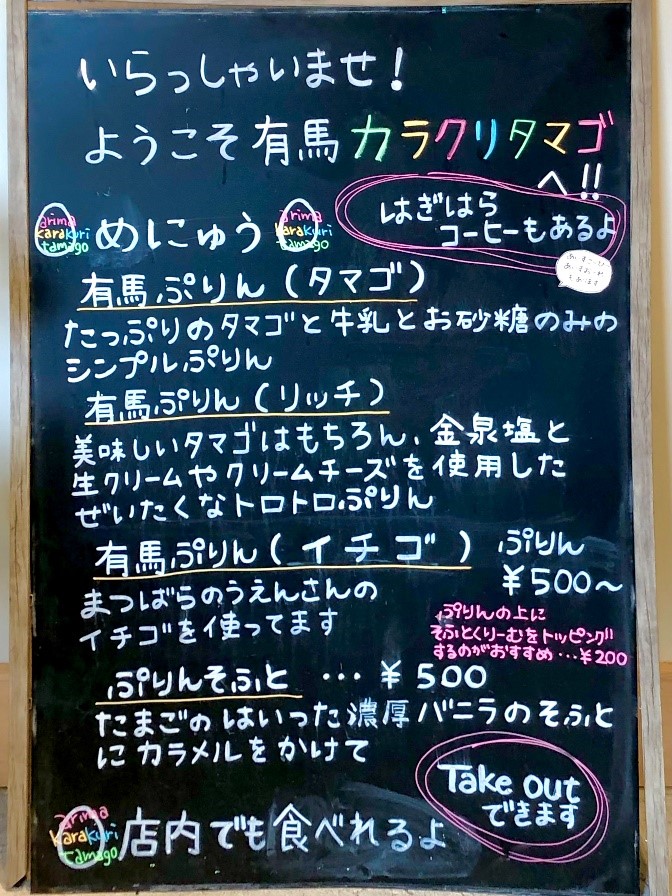 いらっしゃいませ！
ようこそ有馬カラクリタマゴ
へ!!
arima
karakuri
tamago
めにゅう
arima
karakuri
tamago
はぎはら
コーヒーもあるよ
あいすこーひー
もあります
有馬ぷりん（タマゴ）
たっぷりのタマゴと牛乳とお砂糖のみの
シンプルぷりん
有馬ぷりん（リッチ）
美味しいタマゴはもちろん、金泉塩と
生クリームやクリームチーズを使用した
ぜいたくなトロトロぷりん
有馬ぷりん（イチゴ）
ぷりん
¥500〜
まつばらのうえんさんの
イチゴを使ってます
ぷりんの上に
そふとくりーむをトッピング!!
するのがおすすめ…¥200
ぷりんそふと …¥500
たまごのはいった濃厚バニラのそふと
にカラメルをかけて
Take out
できます
arima
karakuri
tamago
店内でも食べれるよ